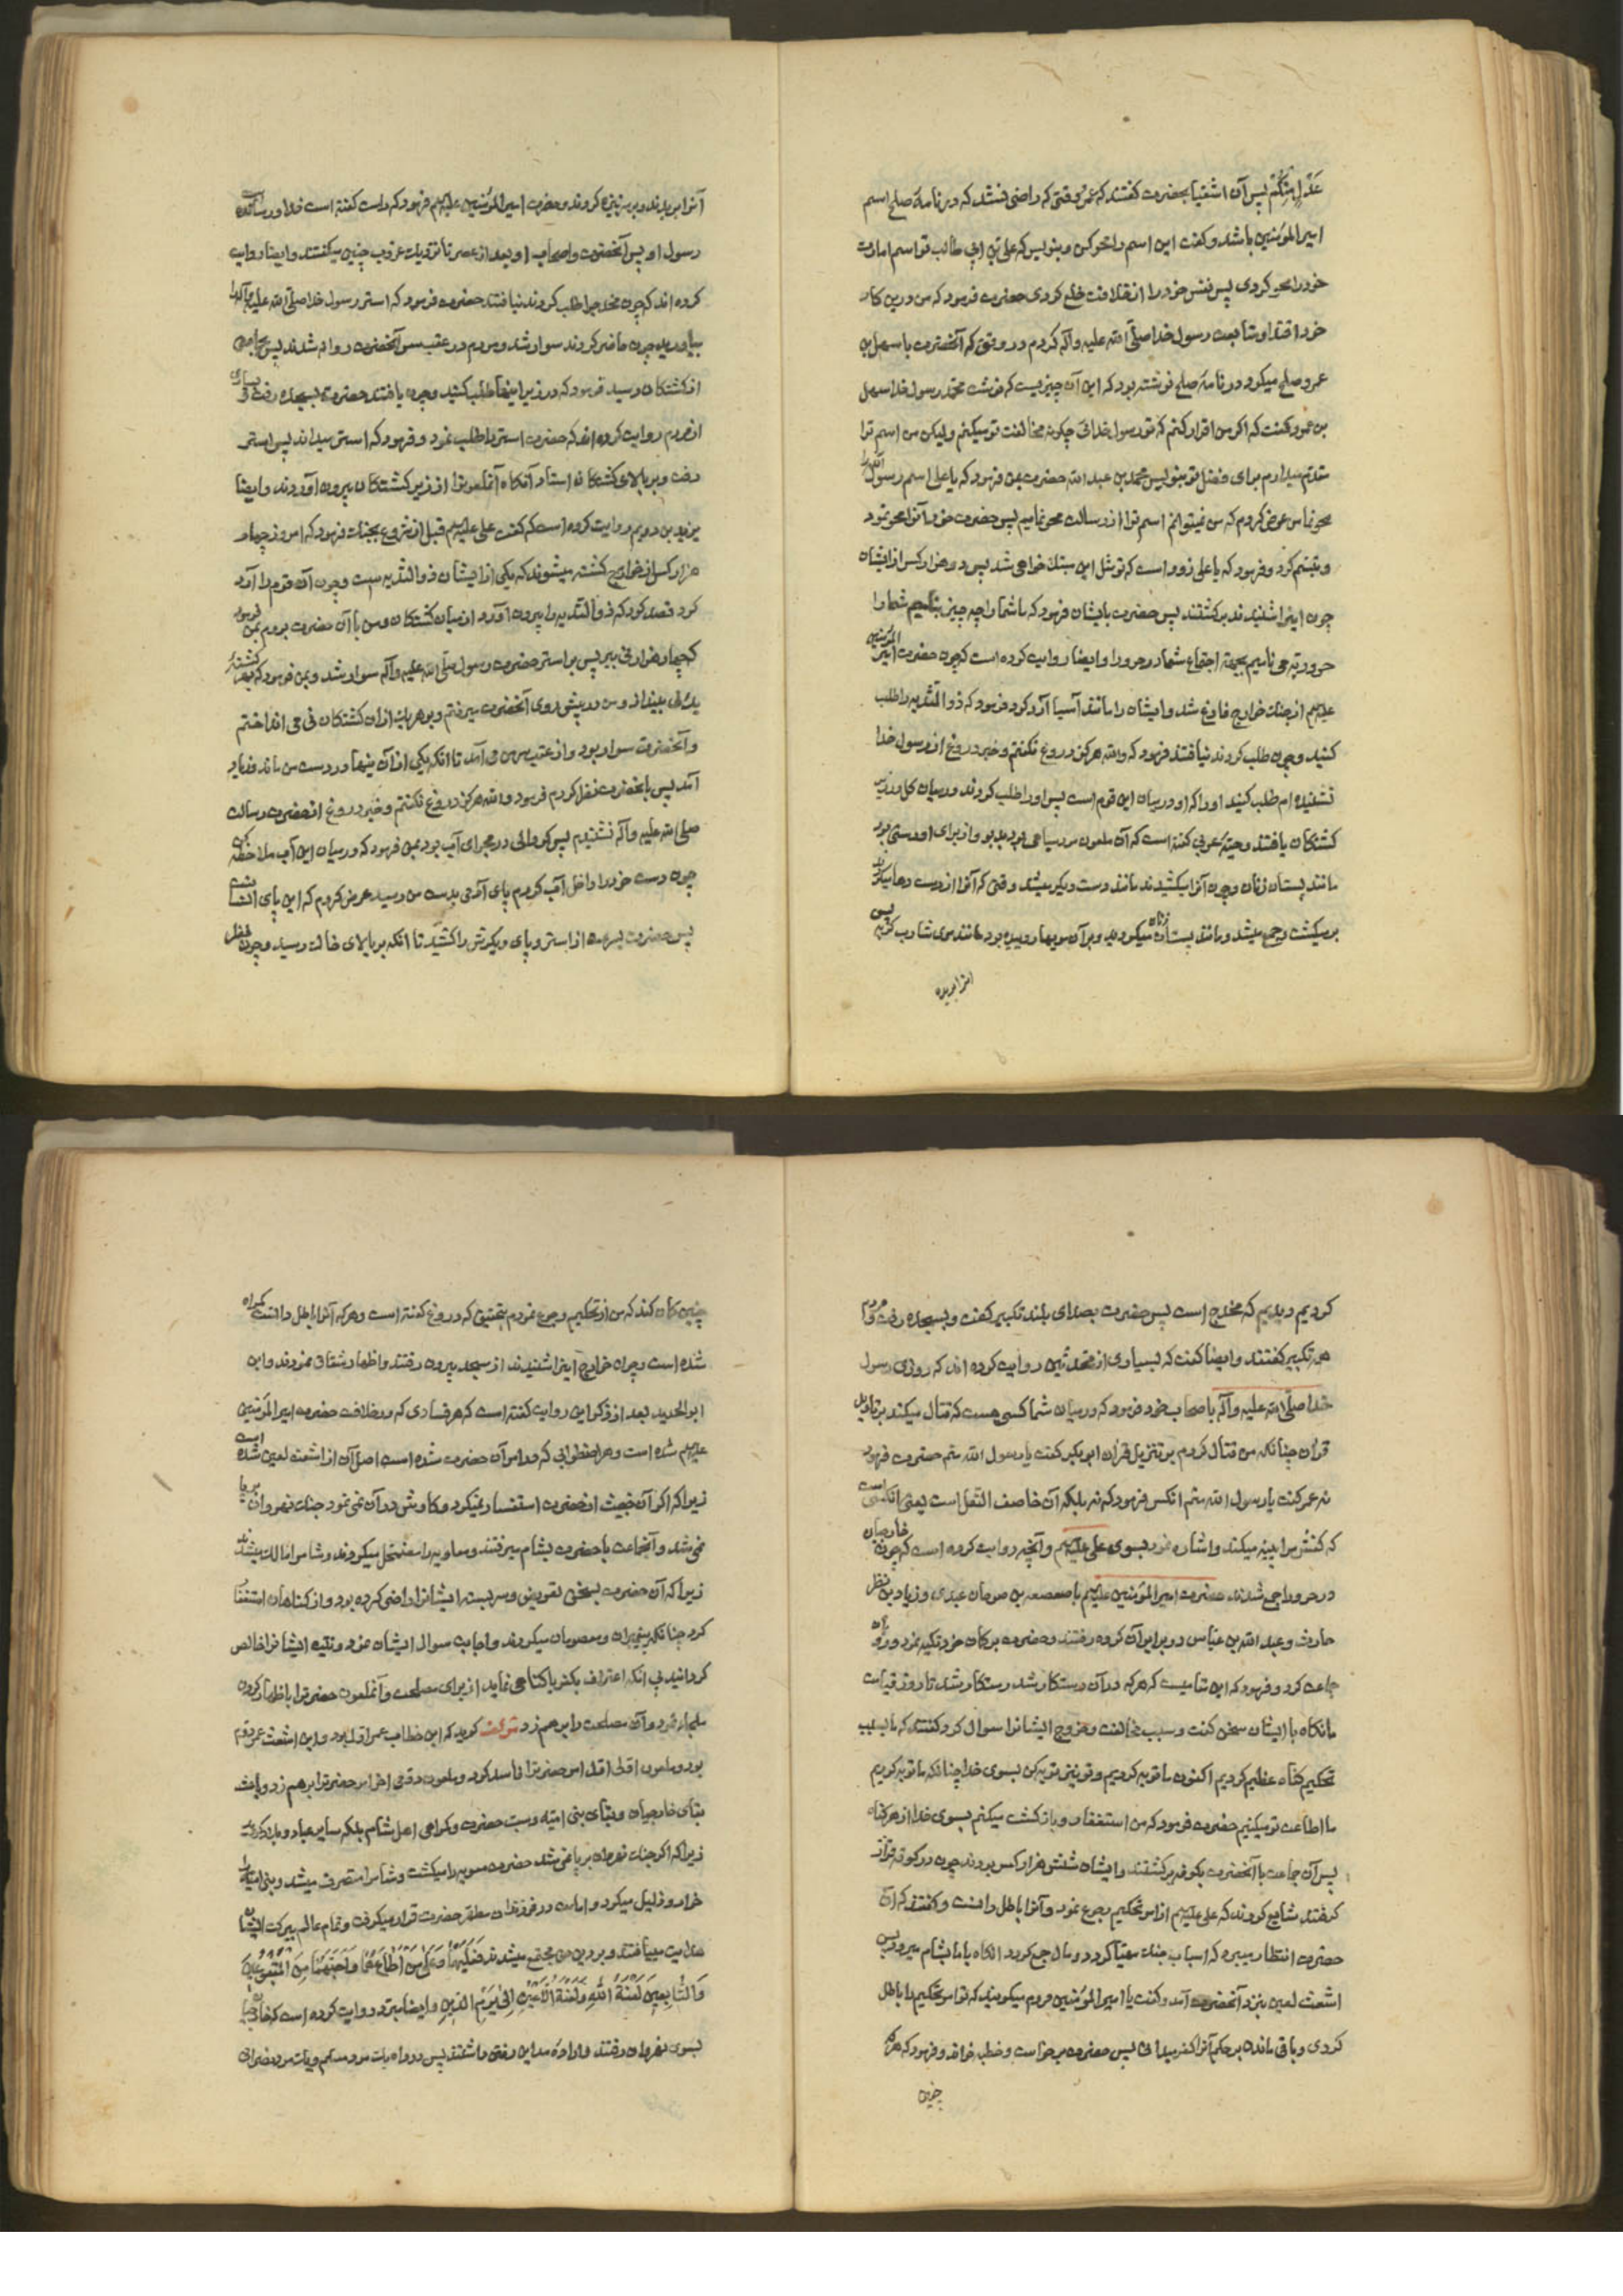 عَدْلٍ مِنْکُمْ پس آن اشقیا بحضرت گفتند که عمرو وقتی که راضی نشد که در نامهٔ صلح اسم
امیرالمؤمنین باشد و گفت این اسم را محو کن و بنویس که علی بن ابی طالب تو اسم امارت
خود را محو کردی پس نفس خود را از خلافت خلع کردی حضرت فرمود که من درین کار
خود اقتدا و متابعت رسول خدا صلّی الله علیه وآله کردم در وقتی که آنحضرت با سهل بن
عمرو صلح میکرد در نامهٔ صلح نوشته بود که این آن چیزیست که نوشت محمّد رسول خدا سهل
بن عمرو گفت که اگر من اقرار کنم که تو رسول خدائی چگونه مخالفت تو میکنم ولیکن من اسم ترا
مقدّم میدارم برای فضل تو بنویس محمد بن عبد الله حضرت بمن فرمود که یا علی اسم رسول الله را
محو نما من عرض کردم که من نمیتوانم اسم ترا از رسالت محو نمایم پس حضرت خود آنرا محو نمود
و تبسّم کرد و فرمود که یا علی زود است که تو بمثل این مبتلا خواهی شد پس دو هزار کس از ایشان
چون اینرا شنیدند برگشتند پس حضرت بایشان فرمود که ما شما را چه چیز بنامیم شما را
حروریّه می نامیم بجهة اجتماع شما در حرورا و ایضا روایت کرده است که چون حضرت امیر المؤمنین
علیه‌م از جنك خوارج فارغ شد و ایشان را مانند آسیا آرد کرد فرمود که ذو الثّدیه را طلب
کنید و چون طلب کردند نیافتند فرمود که والله هرگز دروغ نگفتم و خبر دروغ از رسول خدا
نشنیده‌ام طلب کنید او را که او در میان این قوم است پس او را طلب کردند در میان کل در زیر
کشتگان یافتند و حبّهٔ عرنی گفته است که آن ملعون مرد سیاهی بود بدبو و از برای او دستی بود
مانند پستان زنان و چون آنرا میکشیدند مانند دست دیگر میشد و وقتی که آنرا از دست رها میکردند
برمیگشت و جمع میشد و مانند پستان زنان میگردید و بر آن مویها روییده بود مانند موی شارب گربه پس
آنرا بریده
آنرا بریدند و بر سر نیزه کردند و حضرت امیرالمؤمنین علیه‌م فرمود که راست گفته است خدا و رسانیده است
رسول او پس آنحضرت و اصحاب او بعد از عصر تا نزدیك غروب چنین میگفتند و ایضا روایت
کرده‌اند که چون مخدج را طلب کردند نیافتند حضرت فرمود که استر رسول خدا صلّی الله علیه وآله را
بیاورید چون حاضر کردند سوار شد و مردم در عقب سر آنحضرت روانه شدند پس بجائی
از کشتگان رسید فرمود که در زیر اینها طلب کنید و چون یافتند حضرت بسجده رفت و بسیاری
از مردم روایت کرده‌اند که حضرت استر را طلب نمود و فرمود که استر میداند پس استر
رفت و بر بالای کشتگان استاد آنگاه آنملعونرا از زیر کشتگان بیرون آوردند و ایضا
یزید بن رویم روایت کرده است که گفت علی علیه‌م قبل از شروع بجنك فرمود که امروز چهار
هزار کس از خوارج کشته میشوند که یکی از ایشان ذو الثدیه است و چون آن قوم را آرد
کرد قصد کرد که ذو الثدیه را بیرون آورد از میان کشتگان و من با آن حضرت بودم بمن فرمود
که چهار هزار نی ببر پس بر استر حضرت رسول صلّی الله علیه وآله سوار شد و بمن فرمود که بهر کشتهٔ
یك نی بینداز و من در پیش روی آنحضرت میرفتم و بر هر یك از آن کشتگان نی می انداختم
و آنحضرت سوار بود و از عقب من می آمد تا انکه یکی از آن نیها در دست من ماند
آمد پس بآنحضرت نظر کردم فرمود والله هرگز دروغ نگفتم و خبر دروغ از حضرت رسالت
صلّی الله علیه وآله نشنیدم پس گودالی در مجرای آب بود بمن فرمود که در میان این آب ملاحظه کن
چون دست خود را داخل آب کردم پای آدمی بدست من رسید عرض کردم که این پای انسانست
پس حضرت از استر و پای دیگرش را کشید تا انکه بر بالای خاك رسید و چون نظر
کردیم دیدیم که مخدج است پس حضرت بصدای بلند تکبیر گفت و بسجده رفت و مردم
هم تکبیر گفتند و ایضا گفت که بسیاری از محدثین روایت کرده‌اند که روزی رسول
خدا صلّی الله علیه وآله باصحاب خود فرمود که در میان شما کسی هست که قتال میکند بر تاویل
قرآن چنانکه من قتال کردم بر تنزیل قرآن ابو بکر گفت یا رسول الله منم حضرت فرمود
نه عمر گفت یا رسول الله منم انکس فرمود که نه بلکه آن خاصف النّعل است یعنی آنکسی است
که کفش را پینه میکند و اشاره نمود بسوی علی علیه‌م و آنچه روایت کرده است که چون خارجیان
در حرورا جمع شدند حضرت امیر المؤمنین علیه‌م با صعصعه بن صوحان عبدی و زیاد بن نظر
حارث و عبد الله بن عبّاس در برابر آن گروه رفتند و حضرت بر کمان خود تکیه نمود و رو بآن
جماعت کرد و فرمود که این مقامیست که هر که در آن رستگار شد رستگار شد تا روز قیامت
مانگاه با ایشان سخن گفت و سبب مخالفت و خروج ایشانرا سوال کرد گفتند که ما بسبب
تحکیم گناه عظیم کردیم اکنون ما توبه کردیم و تو نیز توبه کن بسوی خدا چنانکه ما توبه کردیم
ما اطاعت تو میکنیم حضرت فرمود که من استغفار و بازگشت میکنم بسوی خدا از هر گناه
پس آن جماعت با آنحضرت بکوفه برگشتند و ایشان شش هزار کس بودند چون در کوفه قرار
گرفتند شایع کردند که علی علیه‌م از امر تحکیم رجوع نمود و آنرا باطل دانست و گفتند که آن
حضرت انتظار میبرد که اسباب جنك مهیّا گردد و مال جمع گردد انگاه با ما بشام میرود پس
اشعث لعین بنزد آنحضرت آمد و گفت یا امیر المؤمنین مردم میگویند که تو امر تحکیم را باطل
کردی و باقی ماندن بر حکم آنرا کفر میدانی پس حضرت برخاست و خطبه خواند و فرمود که هر که
چنین
چنین گمان کند که من از تحکیم رجوع نمودم بتحقیق که دروغ گفته است و هر که آنرا باطل دانست گمراه
شده است و چون خوارج اینرا شنیدند از مسجد بیرون رفتند و اظهار شقاق نمودند و ابن
ابو الحدید بعد از ذکر این روایت گفته است که هر فسادی که در خلافت حضرت امیر المؤمنین
علیه‌م شده است و هر اضطرابی که در امر آن حضرت شده است اصل آن از اشعث لعین شده است
زیرا که اگر آن خبیث از حضرت استفسار نمیکرد و کاوش در آن نمی نمود جنك نهروان برپا
نمی شد و آنجماعت با حضرت بشام میرفتند و معاویه را مستأصل میکردند و شام را مالك میشدند
زیرا که آن حضرت بسخن تعریض و سربسته ایشانرا راضی کرده بود و از گناهان استغفار
کرد چنانکه پیغمبران و معصومان میکردند و اجابت سوال ایشان نمود و نیّت ایشانرا خالص
گردانید بی انکه اعتراف بکفر یا گناهی نماید از برای مصلحت و آنملعون حضرترا باظهار کردن
ملجاء نمود و آن مصلحت را برهم زد مولف گوید که این خطاب عمر اوّل بود و این اشعث عمر دویم
بود و ملعون اوّلی اوّل امر حضرترا فاسد کرد و ملعون دوّمی اخر امر حضرترا برهم زد و باعث
بقای خارجیان و بقای بنی امیّه و سبّ حضرت و گمراهی اهل شام بلکه سایر عباد و بلاد گردید
زیرا که اگر جنك نهروان برپا نمی شد حضرت معویه را میکشت و شام را متصرف میشد و بنی امیّه را
خوار و ذلیل میکرد و امامت در فرزندان مطهّر حضرت قرار میگرفت و تمام عالم ببرکت ایشان
هدایت مییافتند و بر دین حق مجتمع میشدند فَعَلَیْهِمَا وَعَلی مَنْ اَطَاعَهُمَا وَاَحَبَّهُمَا مِنَ الْمَتْبُوعِینَ
وَالتَّابِعِینَ لَعْنَةُ اللهِ وَلَعْنَةُ اللَّاعِنِینَ اِلی یَوْمِ الدِّینِ و ایضا مبرّد روایت کرده است که خارجیان
بسوی نهروان رفتند و ارادهٔ مداین رفتن داشتند پس در راه یك مرد مسلم و یك مرد نصرانی